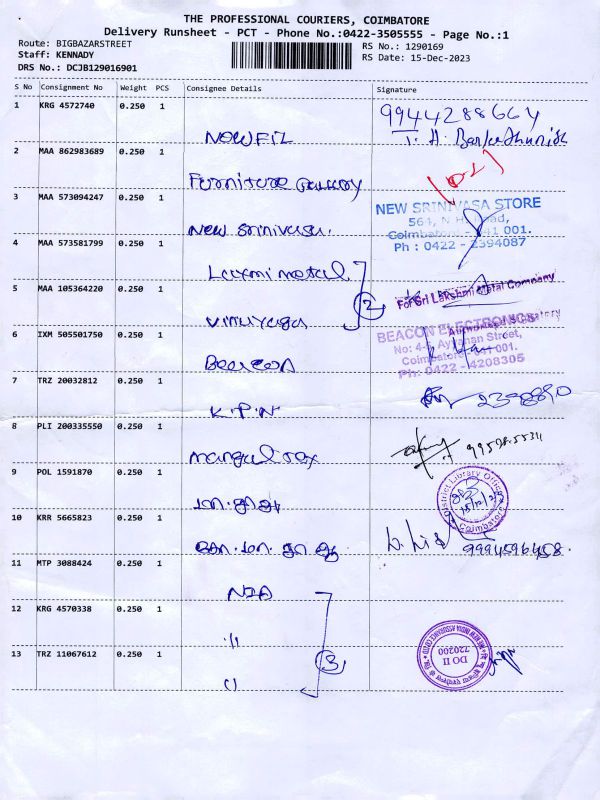 THE PROFESSIONAL COURIERS, COIMBATORE
Delivery Runsheet - PCT - Phone No.:0422-3505555 - Page No.:1
Route: BIGBAZARSTREET
RS No.: 1290169
Staff: KENNADY
RS Date: 15-Dec-2023
DRS No.: DCJB129016901
S No Consignment No Weight PCS Consignee Details Signature
1 KRG 4572740 0.250 1
9944288664
2 MAA 862983689 0.250 1
Furniture
3 MAA 573094247 0.250 1
New Srinivasa.
NEW SRINIVASA STORE
564, N.H. Road,
Coimbatore - 641 001.
Ph : 0422 - 2394087
4 MAA 573581799 0.250 1
Laxmi metal
5 MAA 105364220 0.250 1
2
For Sri Lakshmi Metal Company
Authorised Signatory
6 IXM 505501750 0.250 1
Beacon
BEACON ELECTRONICS
Coimbatore - 641 001.
Ph: 0422 - 4208305
7 TRZ 20032812 0.250 1
K.P.N
8 PLI 200335550 0.250 1
9 POL 1591870 0.250 1
மா.நூலக
District Library Office
15/12/23
Coimbatore
10 KRR 5665823 0.250 1
9994596458.
11 MTP 3088424 0.250 1
NIA
12 KRG 4570338 0.250 1
3
13 TRZ 11067612 0.250 1
DO II
720200